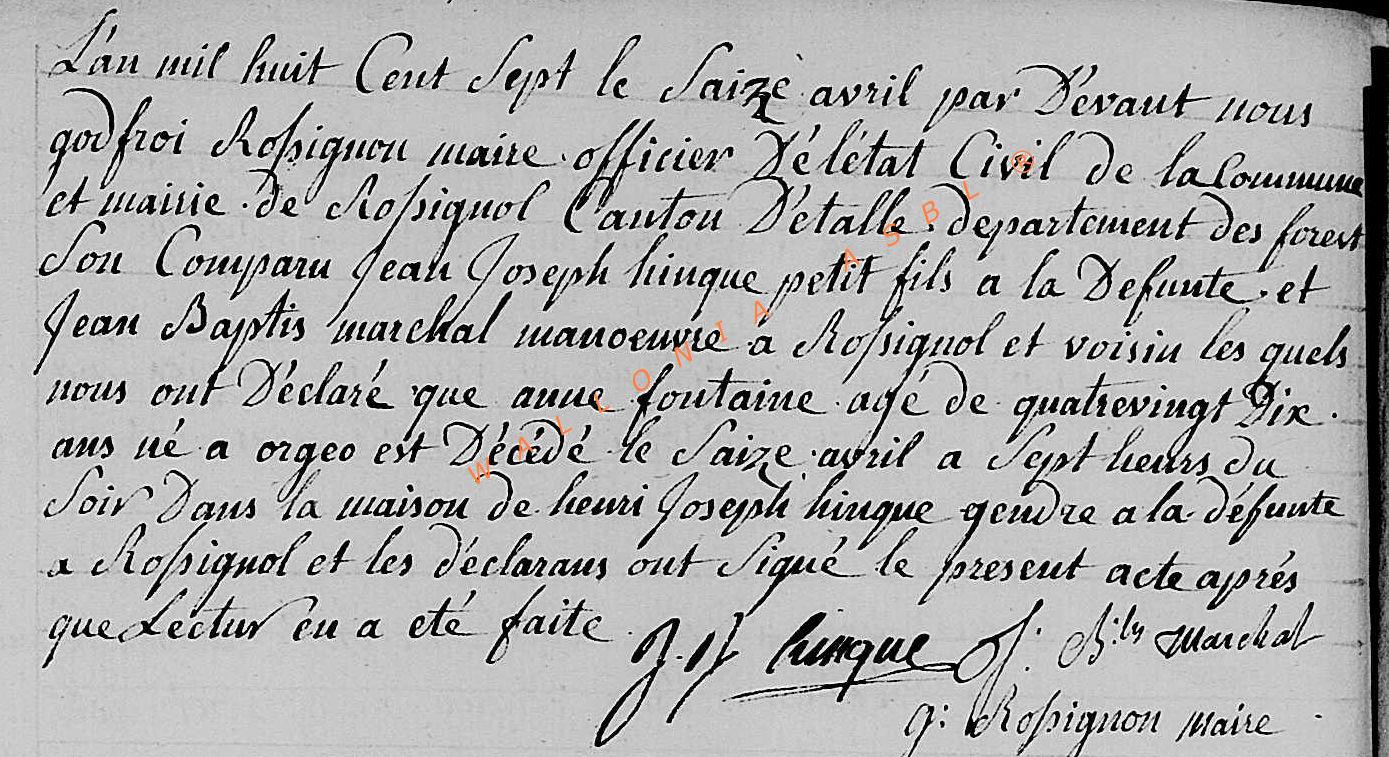 L'an mil huit Cent Sept le Saize avril par Dévant nous
godfroi Rossignon maire officier Délétat Civil de la Commune
et mairie de Rossignol Canton D'étalle departement des forest
Son Comparu Jean Joseph hinque petit fils a la Defunte et
Jean Baptis marchal manoeuvre a Rossignol et voisin les quels
nous ont Déclaré que anne fontaine agé de quatrevingt Dix
ans né a orgeo est Décédé le Saize avril a Sept heurs du
Soir Dans la maison de henri Joseph hinque gendre a la défunte
a Rossignol et les déclarans ont Signé le present acte aprés
que Lectur en a eté faite
J. J. hinque J: B:tis Marchal
g: Rossignon Maire
WALLONIA ASBL ®